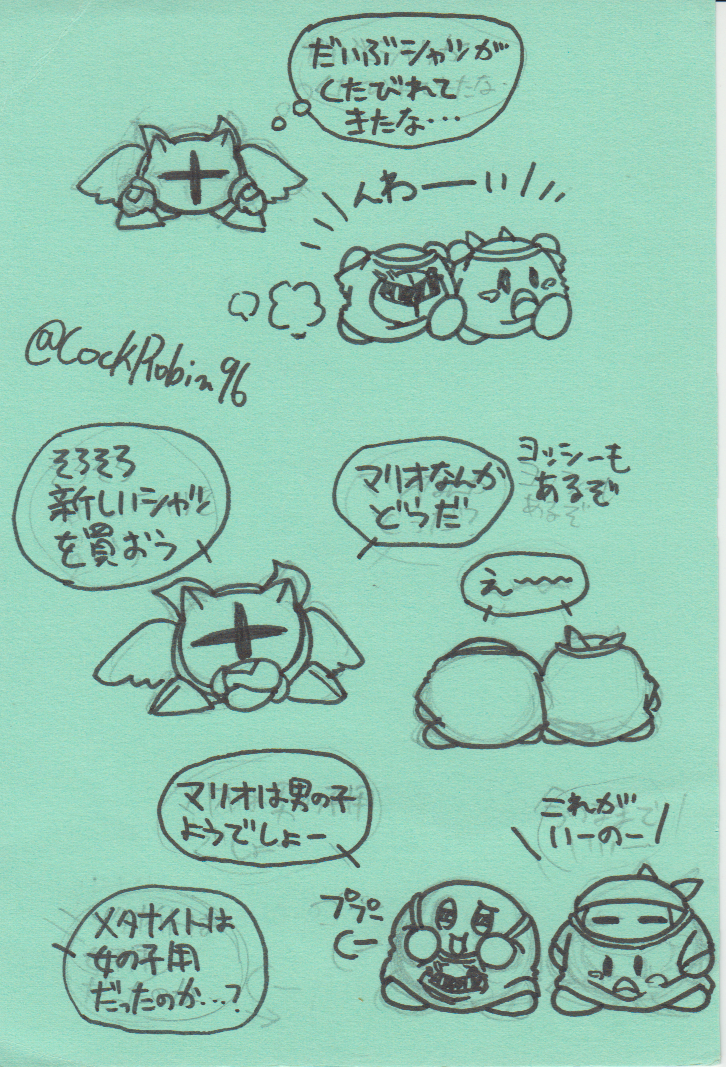 だいぶシャツが
くたびれて
きたな…
んわーーい!!
@CockRobin96
そろそろ
新しいシャツ
を買おう
マリオなんか
どうだ
ヨッシーも
あるぞ
え〜〜
マリオは男の子
ようでしょー
これが
いーのー!
メタナイトは
女の子用
だったのか…?